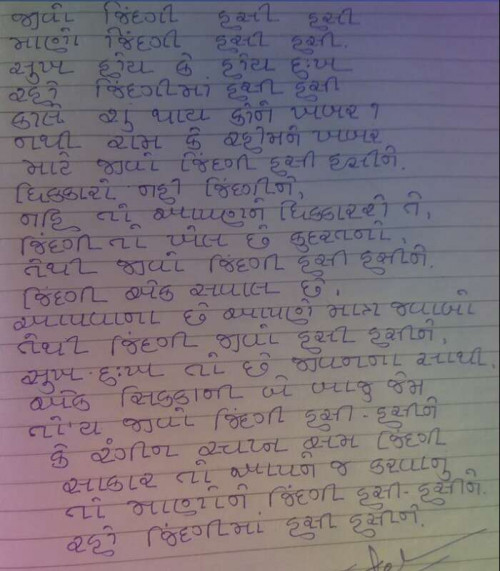 જીવો જિંદગી હસી હસી
માણો જિંદગી હસી હસી.
સુખ હોય કે હોય દુઃખ
રહો જિંદગીમાં હસી હસી
કાલે શું થાય કોને ખબર?
નથી રામ કે રહીમને ખબર
માટે જીવો જિંદગી હસી હસીને.
ધિક્કારો નહી જિંદગીને,
નહિ તો આપણને ધિક્કારશે તે,
જિંદગી તો ખેલ છે કુદરતનો,
તેથી જીવો જિંદગી હસી હસીને.
જિંદગી એક સવાલ છે,
આપવાના છે આપણે માત્ર જવાબો
તેથી જિંદગી જીવો હસી હસીને,
સુખ-દુઃખ તો છે જીવનના સાથી,
એક સિક્કાની બે બાજુ જેમ
તો'ય જીવો જિંદગી હસી-હસીને
કે રંગીન સ્વપ્ન સમ જિંદગી
સાકાર તો આપને જ કરવાનુ
તો માણોને જિંદગી હસી-હસીને.
રહો જિંદગીમાં હસી હસીને.